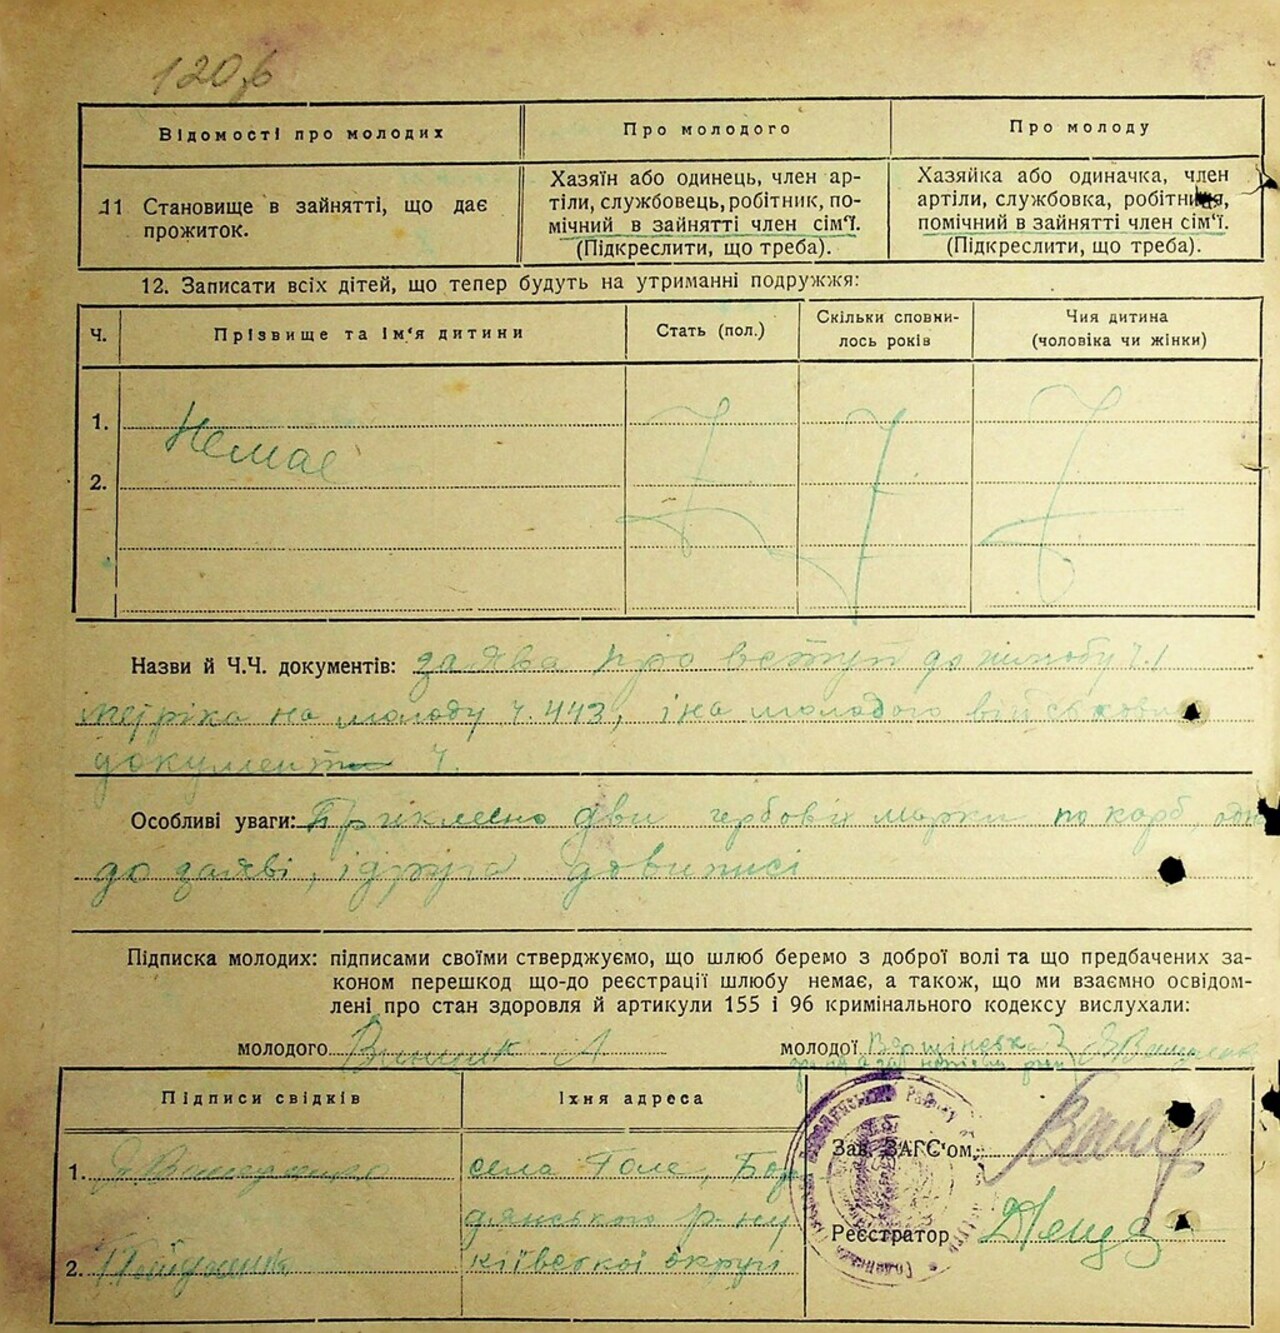 Відомості про молодих
Про молодого
Про молоду
11 Становище в зайнятті, що дає
прожиток.
Хазяїн або одинець, член ар-
тіли, службовець, робітник, по-
мічний в зайнятті член сім'ї.
(Підкреслити, що треба).
Хазяйка або одиначка, член
артіли, службовка, робітниця,
помічний в зайнятті член сім'ї.
(Підкреслити, що треба).
12. Записати всіх дітей, що тепер будуть на утриманні подружжя:
Ч.
Прізвище та ім'я дитини
Стать (пол.)
Скільки сповни-
лось років
Чия дитина
(чоловіка чи жінки)
1.
Немає
2.
Назви й Ч.Ч. документів: заява про вступ до шлюбу ч. 1
метріка на молоду ч. 443, і на молодого військовий
документ ч.
Особливі уваги: Приклеєно дві гербовіх марки по карб, одна
до заяві, і друга до виписі
Підписка молодих: підписами своїми стверджуємо, що шлюб беремо з доброї волі та що предбачених за-
коном перешкод що-до реєстрації шлюбу немає, а також, що ми взаємно освідом-
лені про стан здоровля й артикули 155 і 96 кримінального кодексу вислухали:
молодого
молодої
Підписи свідків
Їхня адреса
1.
села Голе, Бор
дянського р-ну
2.
київської округі
Зав. ЗАГС'ом
Реєстратор